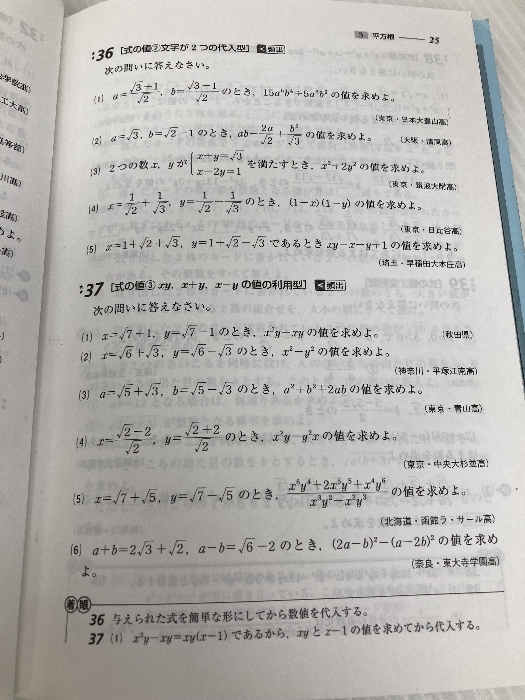 3 平方根 25
36 [式の値②文字が2つの代入型] <頻出
次の問いに答えなさい。
(1) a=(√3+1)/√2, b=(√3−1)/√2 のとき, の値を求めよ。
(東京・日本大豊山高)
(2) a=√3, b=√2−1 のとき, ab−2a/√2+b²/√3 の値を求めよ。 (大阪・清風高)
(3) 2つの数x, yが{x+y=√3 x−2y=1 を満たすとき, x²+2y² の値を求めよ。
(東京・筑波大附高)
(4) x=1/√2+1/√3, y=1/√2−1/√3 のとき, (1−x)(1−y) の値を求めよ。
(東京・日比谷高)
(5) x=1+√2+√3, y=1+√2−√3 であるとき xy−x−y+1 の値を求めよ。
(埼玉・早稲田大本庄高)
37 [式の値③ xy, x+y, x−y の値の利用型] <頻出
次の問いに答えなさい。
(1) x=√7+1, y=√7−1 のとき, x²y−xy の値を求めよ。 (秋田県)
(2) x=√6+√3, y=√6−√3 のとき, x²−y² の値を求めよ。
(神奈川・平塚江南高)
(3) a=√5+√3, b=√5−√3 のとき, a²+b²+2ab の値を求めよ。
(東京・青山高)
(4) x=(√2−2)/√2, y=(√2+2)/√2 のとき, x²y−y²x の値を求めよ。
(東京・中央大杉並高)
(5) x=√7+√5, y=√7−√5 のとき, (x⁶y⁴+2x⁵y⁵+x⁴y⁶)/(x³y²−x²y³) の値を求めよ。
(北海道・函館ラ・サール高)
(6) a+b=2√3+√2, a−b=√6−2 のとき, (2a−b)²−(a−2b)² の値を求め
よ。 (奈良・東大寺学園高)
着眼
36 与えられた式を簡単な形にしてから数値を代入する。
37 (1) x²y−xy=xy(x−1) であるから, xy と x−1 の値を求めてから代入する。